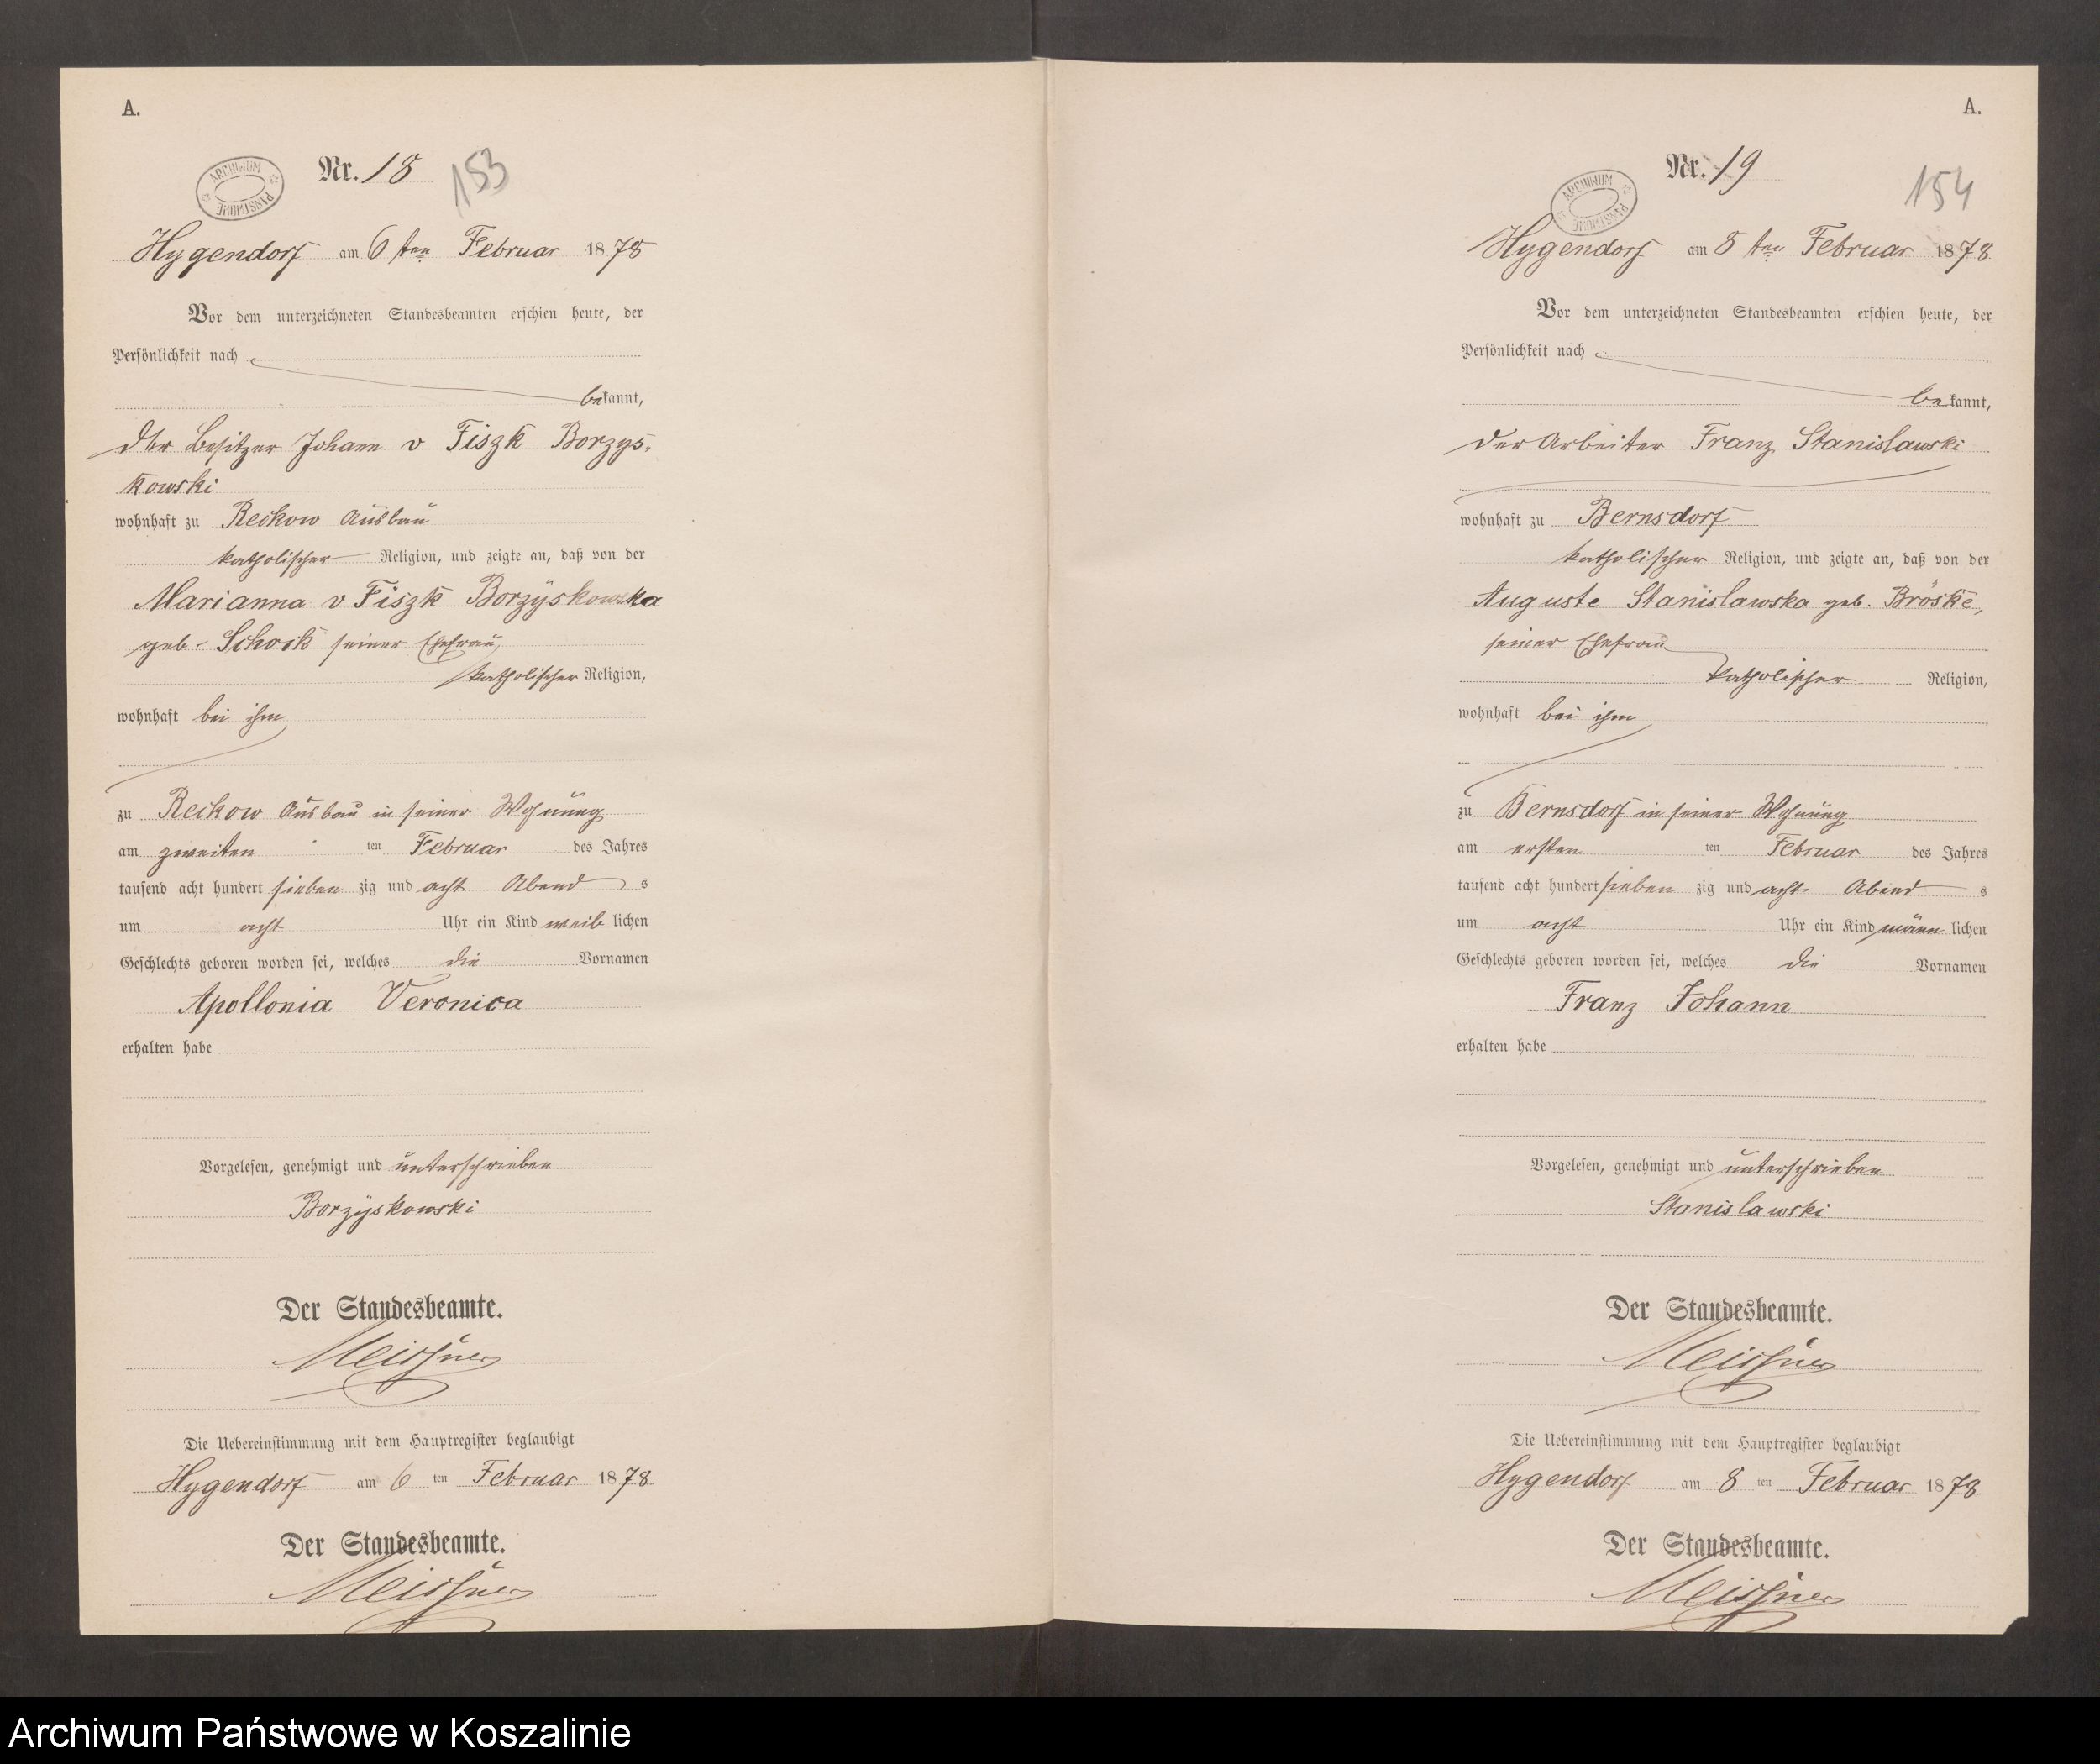 A.
ARCHIWUM PAŃSTWOWE
Nr. 18 153
Hygendorf am 6 ten Februar 1878
Vor dem unterzeichneten Standesbeamten erschien heute, der
Persönlichkeit nach
bekannt,
der Besitzer Johann v Fiszk Borzys-
kowski
wohnhaft zu Reckow Ausbau
katholischer Religion, und zeigte an, daß von der
Marianna v Fiszk Borzyskowska
geb. Schock seiner Ehefrau,
katholischer Religion,
wohnhaft bei ihm
zu Reckow Ausbau in seiner Wohnung
am zweiten ten Februar des Jahres
tausend acht hundert sieben zig und acht Abend s
um acht Uhr ein Kind weib lichen
Geschlechts geboren worden sei, welches die Vornamen
Apollonia Veronica
erhalten habe
Vorgelesen, genehmigt und unterschrieben
Borzyskowski
Der Standesbeamte.
Meissner
Die Uebereinstimmung mit dem Hauptregister beglaubigt
Hygendorf am 6 ten Februar 1878
Der Standesbeamte.
Meissner
A.
ARCHIWUM PAŃSTWOWE
Nr. 19 154
Hygendorf am 8 ten Februar 1878
Vor dem unterzeichneten Standesbeamten erschien heute, der
Persönlichkeit nach
bekannt,
der Arbeiter Franz Stanislawski
wohnhaft zu Bernsdorf
katholischer Religion, und zeigte an, daß von der
Auguste Stanislawska geb. Bröske,
seiner Ehefrau
katholischer Religion,
wohnhaft bei ihm
zu Bernsdorf in seiner Wohnung
am ersten ten Februar des Jahres
tausend acht hundert sieben zig und acht Abend s
um acht Uhr ein Kind männ lichen
Geschlechts geboren worden sei, welches die Vornamen
Franz Johann
erhalten habe
Vorgelesen, genehmigt und unterschrieben
Stanislawski
Der Standesbeamte.
Meissner
Die Uebereinstimmung mit dem Hauptregister beglaubigt
Hygendorf am 8 ten Februar 1878
Der Standesbeamte.
Meissner
Archiwum Państwowe w Koszalinie